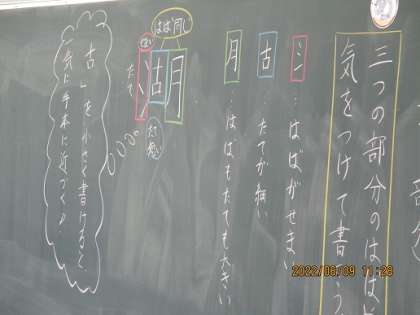 三つの部分のはば
気をつけて書こう
氵…はばがせまい
古…たてが
月…はばもたても大きい
はば同じ
湖
たて
「古」を小さく書けると、
一気に手本に近づく♪
2022/06/09 11:28